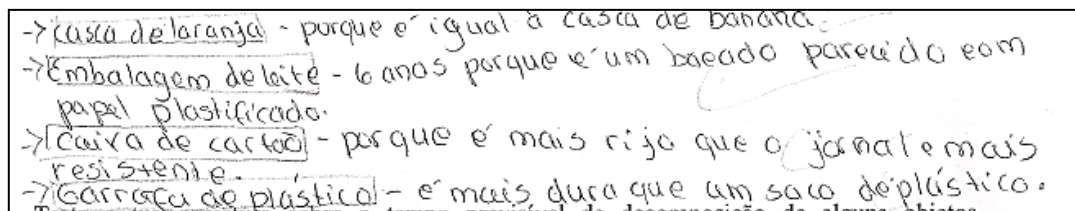 -> casca de laranja - porque é igual à casca de banana.
-> Embalagem de leite - 6 anos porque é um bocado parecido com
papel plastificado.
-> Caixa de cartão - porque é mais rijo que o jornal e mais
resistente.
-> Garrafa de plástico - é mais dura que um saco de plástico.